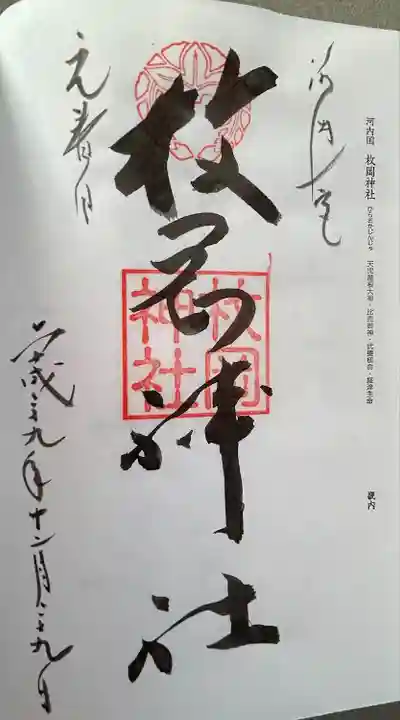 河内国 枚岡神社 ひらおかじんじゃ 天児屋根大神・比売御神・武甕槌命・斎主命
畿内
河内一宮
枚岡神社
枚岡
神社
元春日
平成二十九年十二月二十九日